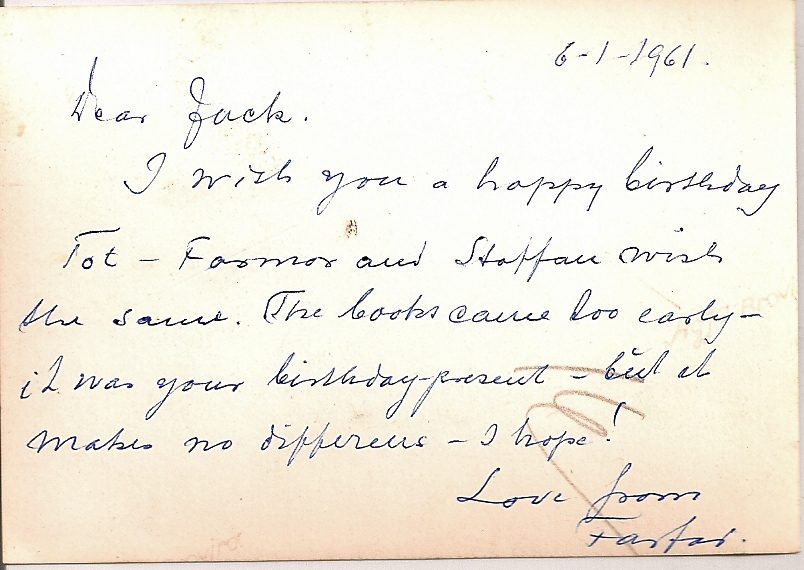 6-1-1961.
Dear Jack.
I wish you a happy birthday
Tot – Farmor and Staffan wish
the same. The books came too early –
it was your birthday-present – but it
makes no differens – I hope!
Love from
Farfar.